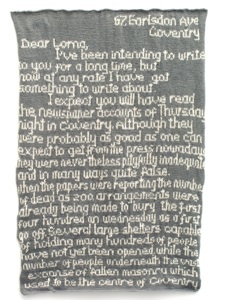 67. Earlsdon Ave
Coventry
Dear Lorna,
I've been intending to write
to you for a long time, but
now at any rate I have got
something to write about.
I expect you will have read
the newspaper accounts of Thursday
night in Coventry. Although they
were probably as good as one can
expect to get from the press nowadays
they were nevertheless pitifully inadequate
and in many ways quite false.
When the papers were reporting the number
of dead as 200 arrangements were
already being made to bury the first
four hundred on Wednesday as a first
go off. Several large shelters capable
of holding many hundreds of people
have not yet been opened while the
number of people underneath the vast
expanse of fallen masonry which
used to be the centre of Coventry